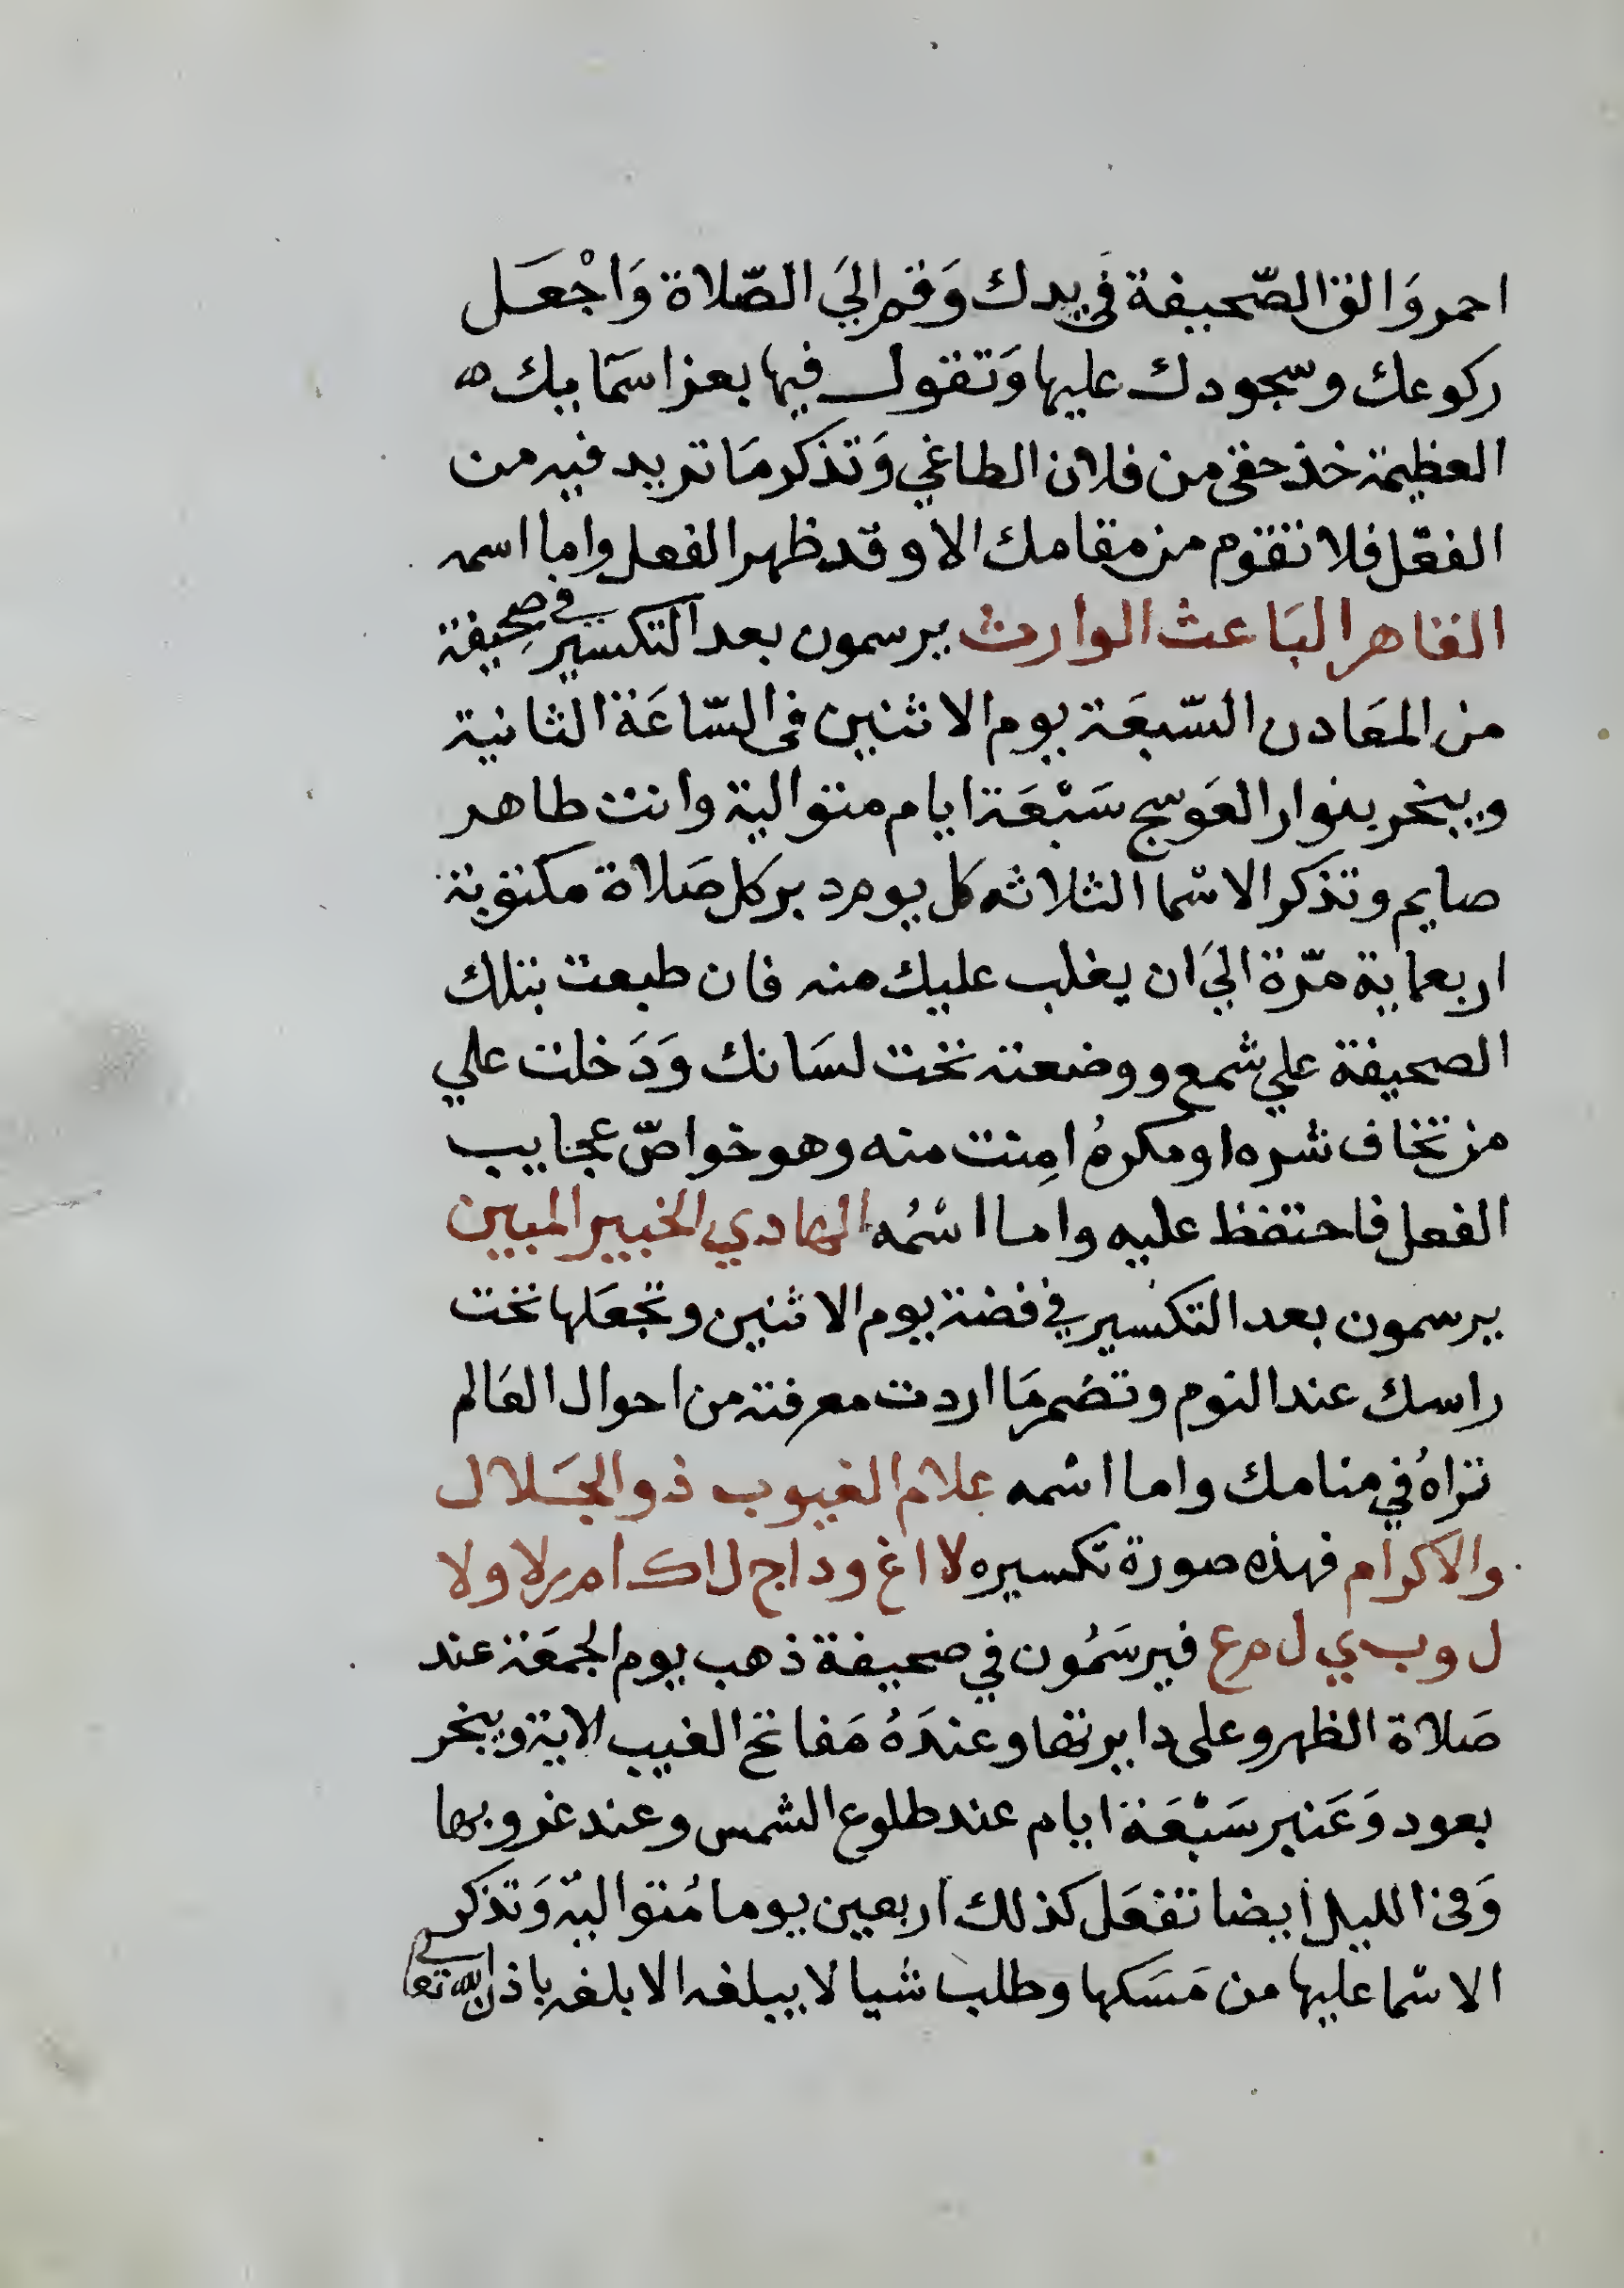 احمر وَالق الصّحيفة في يدك وَقم اليَ الصّلاة وَاجْعَل
ركوعك وسجودك عليها وَتقول فيها بعز اسمَايك
العظيمة خذ حقى من فلان الطاغي وَتذكر مَا تريد فيه من
الفعل فلا تقوم من مقامك الا وقد ظهر الفعل واما اسمه
القاهر البَاعث الوارث يرسمون بعد التكسير في صحيفة
من المعَادن السّبعَة يوم الاثنين فى السّاعَة الثانية
ويبخر بنوار العَوسج سَبْعَة ايام متوالية وانت طاهر
صايم وتذكر الاسما الثلاثه كل يوم دبر كل صَلاة مكتوبة
اربعماية مَرّة اليَ ان يغلب عليك منه فان طبعت بتلك
الصحيفة علي شمع ووضعته تحت لسَانك وَدَخلت علي
من تخاف شره او مكرهُ امِنت منه وهو خواصّ عجايب
الفعل فاحتفظ عليه واما اسْمُه الهادي الخبير المبين
يرسمون بعد التكسير في فضة يوم الاثنين وتجعَلها تحت
راسك عند النوم وتضمر مَا اردت معرفته من احوال العَالم
تراهُ في منامك واما اسمه علام الغيوب ذو الجَلال
والاكرام فهذه صورة تكسيره لا ا غ و د ا ج ل ا ك ا م ر لا و لا
ل و ب ي ل م ع فيرسَمُون في صحيفة ذهب يوم الجمعَة عند
صَلاة الظهر وعلى دايرتها وعندَهُ مَفاتح الغيب الاية ويبخر
بعود وَعَنبر سَبْعَة ايام عند طلوع الشمس وعند غروبها
وَفى الليل أيضا تفعَل كذلك اربعين يوما مُتوالية وَتذكر
الاسما عليها من مَسَكها وطلب شيا لا يبلغه الا بلغه باذن الله تعالي